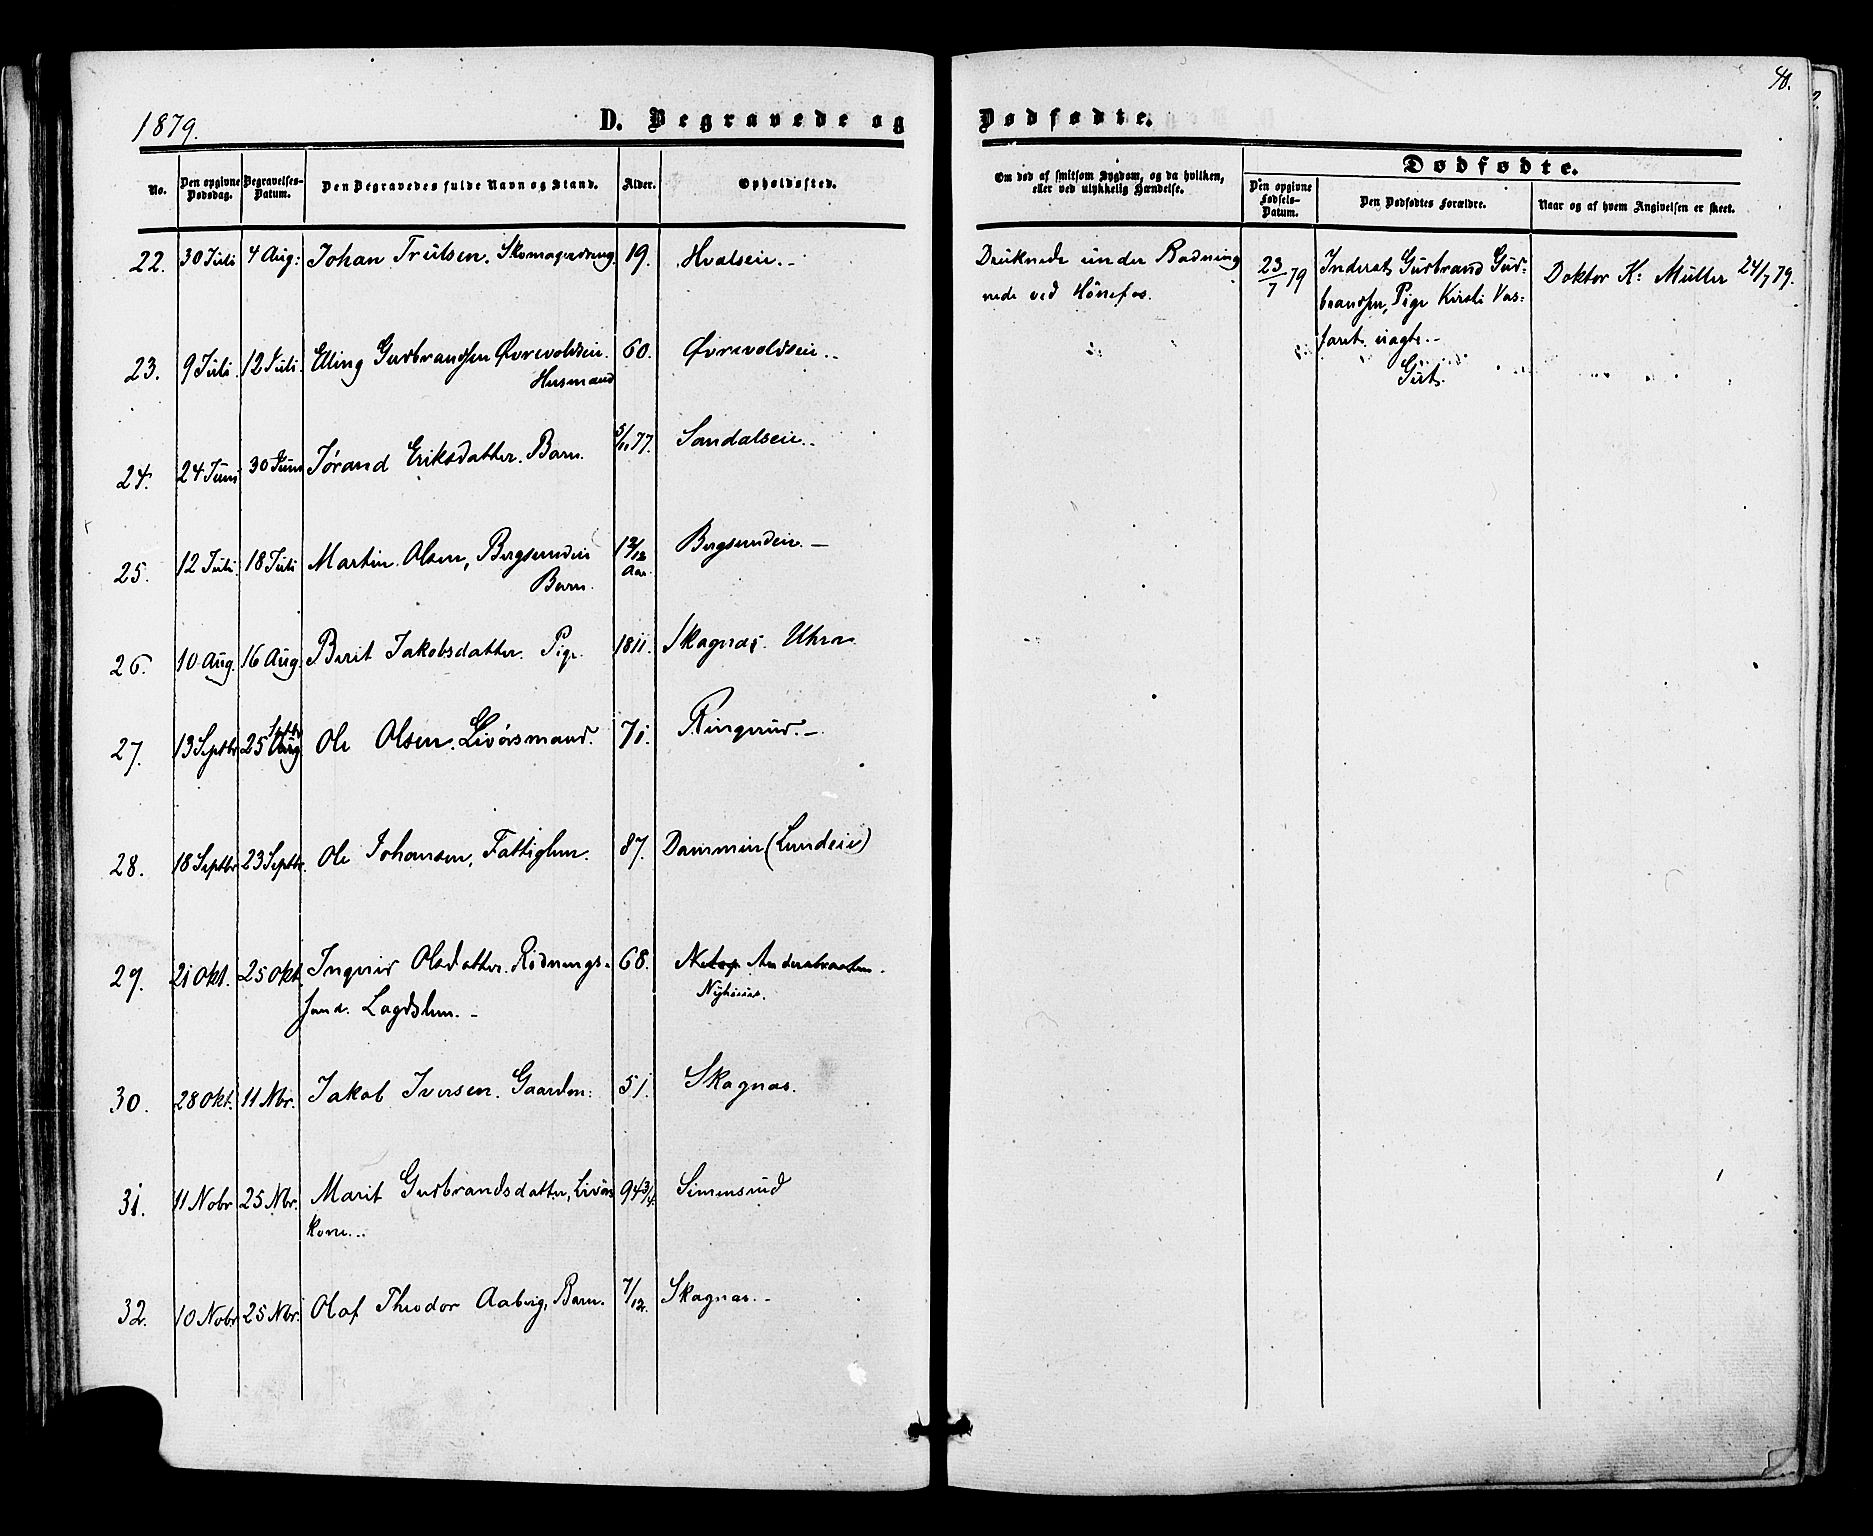 40.
1879. D. Begravede og Dødfødte.
No. Den opgivne Dødsdag. Begravelses-Datum. Den Begravedes fulde Navn og Stand. Alder. Opholdssted. Om død af smitsom Sygdom, og da hvilken, eller ved ulykkelig Hændelse. Dødfødte.
Den opgivne Fødsels-Datum. Den Dødfødtes Forældre. Naar og af hvem Angivelsen er skeet.
22. 30 Juli 4 Aug: Johan Trulsen. Skomagerdreng 19. Hvalseie.- Druknede under Badning
nede ved Hønefos. 23/7 79 Inderst Gudbrand Gud-
brandsen, Pige Kirsti Vas-
faret. uægte.-
Gut. Doktor K: Müller 24/7 79.
23. 9 Juli 12 Juli Elling Gudbrandsen Øvrevoldseie.
Husmand 60. Øvrevoldseie.-
24. 24 Juni 30 Juni Jørand Eriksdatter. Barn. 5/11 77. Sandalseie.-
25. 12 Juli 18 Juli Martin Olsen, Bergsundeie
Barn. Aar. Bergsundeie.-
26. 10 Aug. 16 Aug. Berit Jakobsdatter. Pige. 1811. Skagnæs. Uhra
27. 13 Septbr 25 Septbr Aug Ole Olsen. Livørsmand. 71. Ringerud.-
28. 18 Septbr 23 Septbr. Ole Johansen, Fattiglem. 87. Dammen (Lundeie)
29. 21 Okt. 25 Okt. Ingerid Olsdatter. Rødnings-
sand. Lægdslem.- 68. Andersbraaten.
30. 28 Okt. 11 Nbr. Jakob Iversen. Gaardm: 51. Skagnæs.
31. 11 Nobr 25 Nbr. Marit Gudbrandsdatter, Livørs
kone.- 94 3/4. Simensrud
32. 10 Nobr 25 Nbr. Olaf Theodor Aaberg, Barn. 7/12. Skagnæs.-